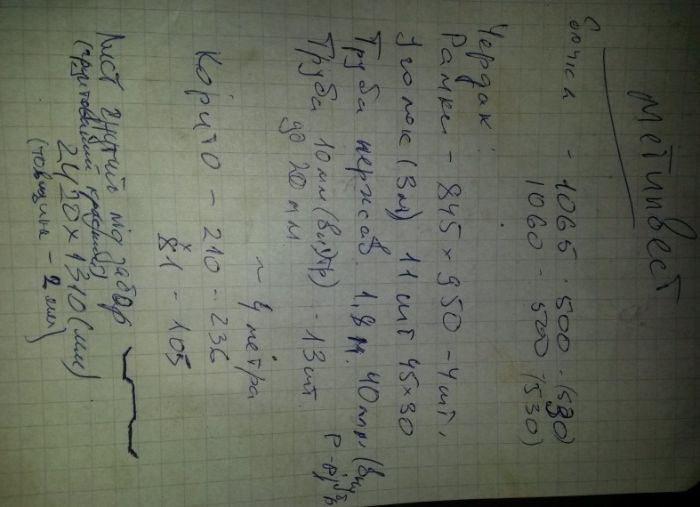 Метинвест
Сотки - 1065 · 500 - (580)
1060 - 500 (530)
Чердак:
Рамки - 845 × 950 - 4 шт.
Уголок (3м) 11 шт 45×30
Труба нержав. 1,8 м. 40мм (вну
Труба 10мм (внутр) - 13 шт.
до 20мм
~ 4 метра
Корито - 210 - 236
81 - 105
Лист гнутий під забор
2420 × 1310 (мм)
(товщина - 2 мм)